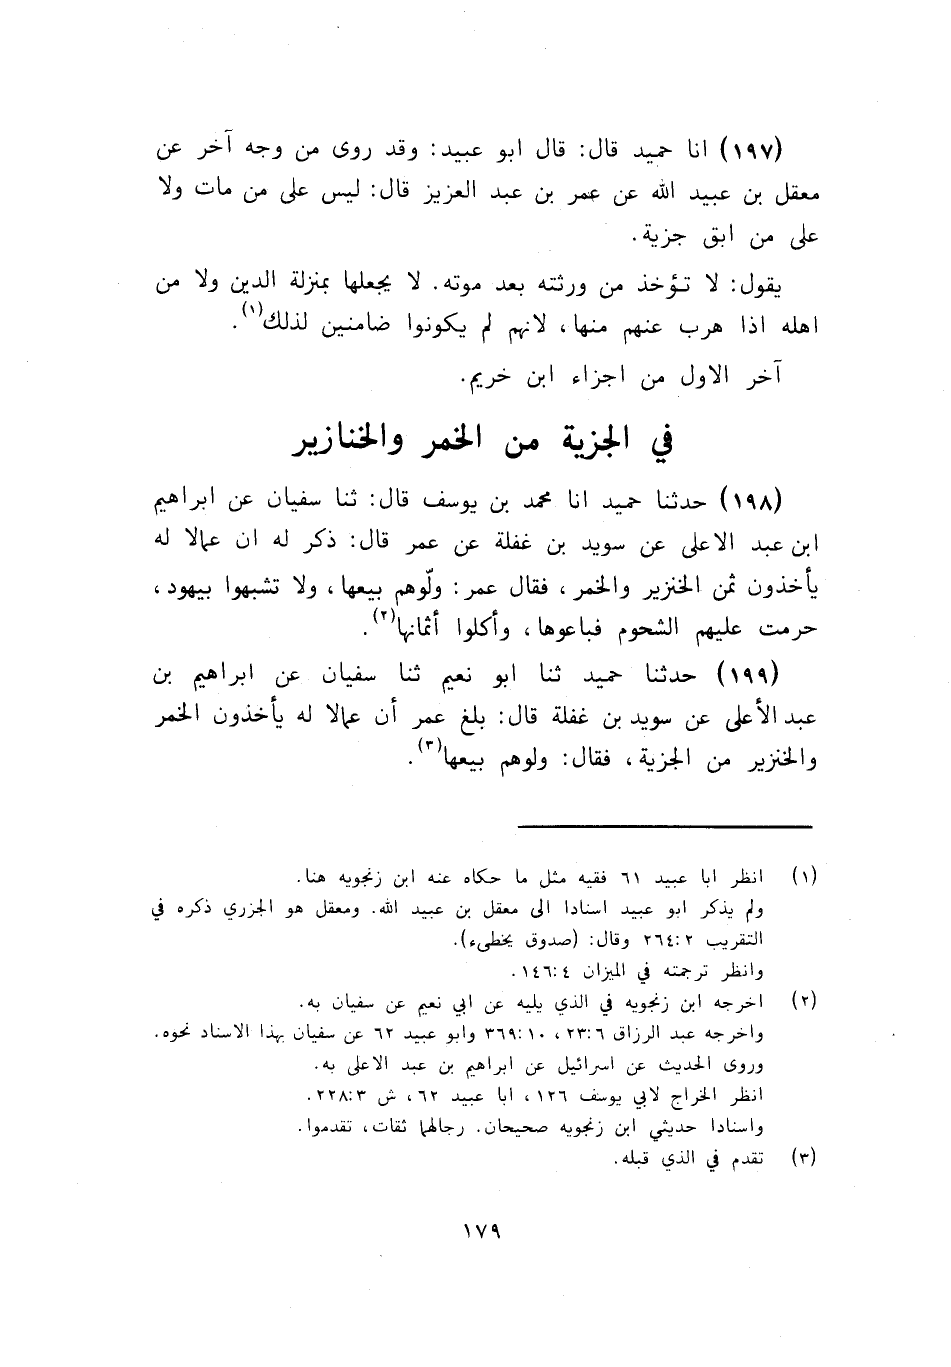 (١٩٧) انا حميد قال: قال ابو عبيد: وقد روى من وجه آخر عن
معقل بن عبيد الله عن عمر بن عبد العزيز قال: ليس على من مات ولا
على من ابق جزية.
يقول: لا تؤخذ من ورثته بعد موته. لا يجعلها بمنزلة الدين ولا من
اهله اذا هرب عنهم منها، لانهم لم يكونوا ضامنين لذلك(١).
آخر الاول من اجزاء ابن خريم.
في الجزية من الخمر والخنازير
(١٩٨) حدثنا حميد انا محمد بن يوسف قال: ثنا سفيان عن ابراهيم
ابن عبد الاعلى عن سويد بن غفلة عن عمر قال: ذكر له ان عمالا له
يأخذون ثمن الخنزير والخمر، فقال عمر: ولّوهم بيعها، ولا تشبهوا بيهود،
حرمت عليهم الشحوم فباعوها، وأكلوا أثمانها(٢).
(١٩٩) حدثنا حميد ثنا ابو نعيم ثنا سفيان عن ابراهيم بن
عبد الأعلى عن سويد بن غفلة قال: بلغ عمر أن عمالا له يأخذون الخمر
والخنزير من الجزية، فقال: ولوهم بيعها(٣).
(١) انظر ابا عبيد ٦١ فقيه مثل ما حكاه عنه ابن زنجويه هنا.
ولم يذكر ابو عبيد اسنادا الى معقل بن عبيد الله. ومعقل هو الجزري ذكره في
التقريب ٢: ٢٦٤ وقال: (صدوق يخطىء).
وانظر ترجمته في الميزان ٤: ١٤٦.
(٢) اخرجه ابن زنجويه في الذي يليه عن ابي نعيم عن سفيان به.
واخرجه عبد الرزاق ٦: ٢٣، ١٠: ٣٦٩ وابو عبيد ٦٢ عن سفيان بهذا الاسناد نحوه.
وروى الحديث عن اسرائيل عن ابراهيم بن عبد الاعلى به.
انظر الخراج لابي يوسف ١٢٦، ابا عبيد ٦٢، ش ٣: ٢٢٨.
واسنادا حديثي ابن زنجويه صحيحان. رجالهما ثقات، تقدموا.
(٣) تقدم في الذي قبله.
١٧٩